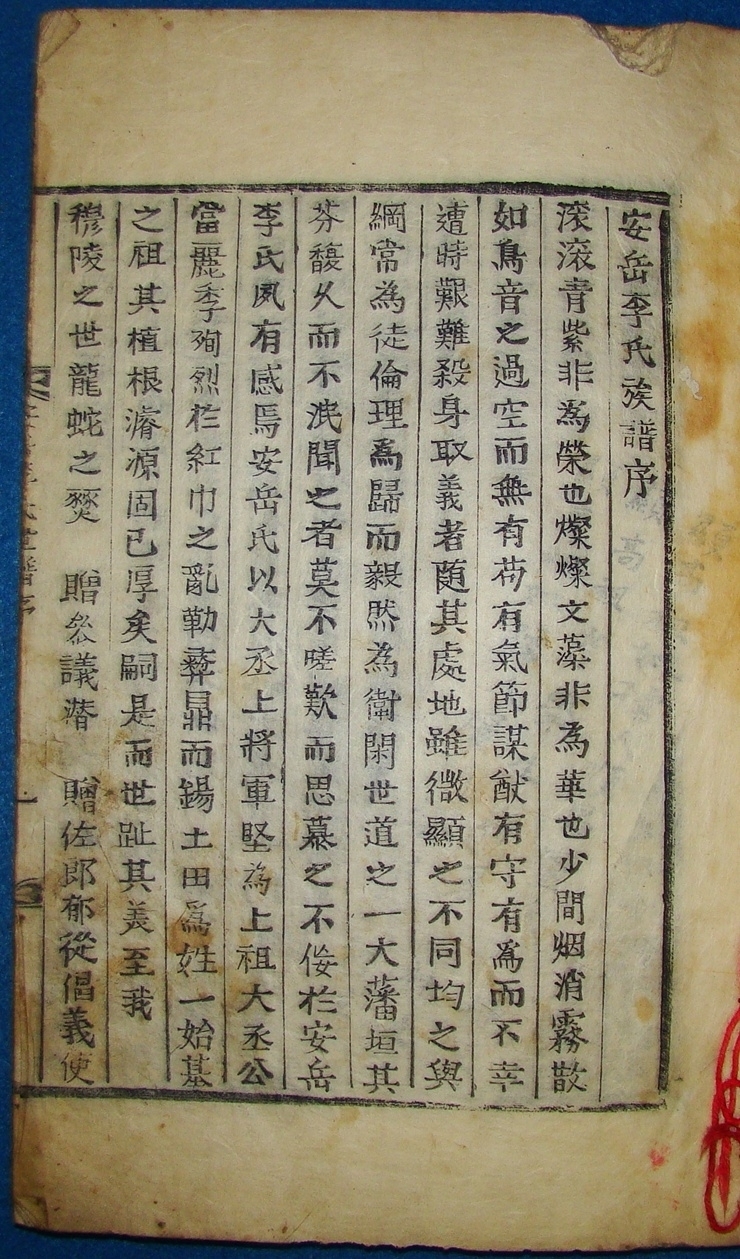 安岳李氏族譜序
滚滚青紫非為榮也燦燦文藻非為華也少間烟消霧散
如鳥音之過空而無有苟有氣節謀猷有守有爲而不幸
遭時艱難殺身取義者随其處地雖微顯之不同均之與
綱常為徒倫理爲歸而毅然為衛閑世道之一大藩垣其
芬馥久而不泯聞之者莫不嗟歎而思慕之不侫於安岳
李氏夙有感焉安岳氏以大丞上將軍堅為上祖大丞公
當麗季殉烈於紅巾之亂勒彛鼎而錫土田爲姓一始基
之祖其植根濬源固已厚矣嗣是而世趾其美至我
穆陵之世龍蛇之燹 贈叅議潜 贈佐郎郁從倡義使